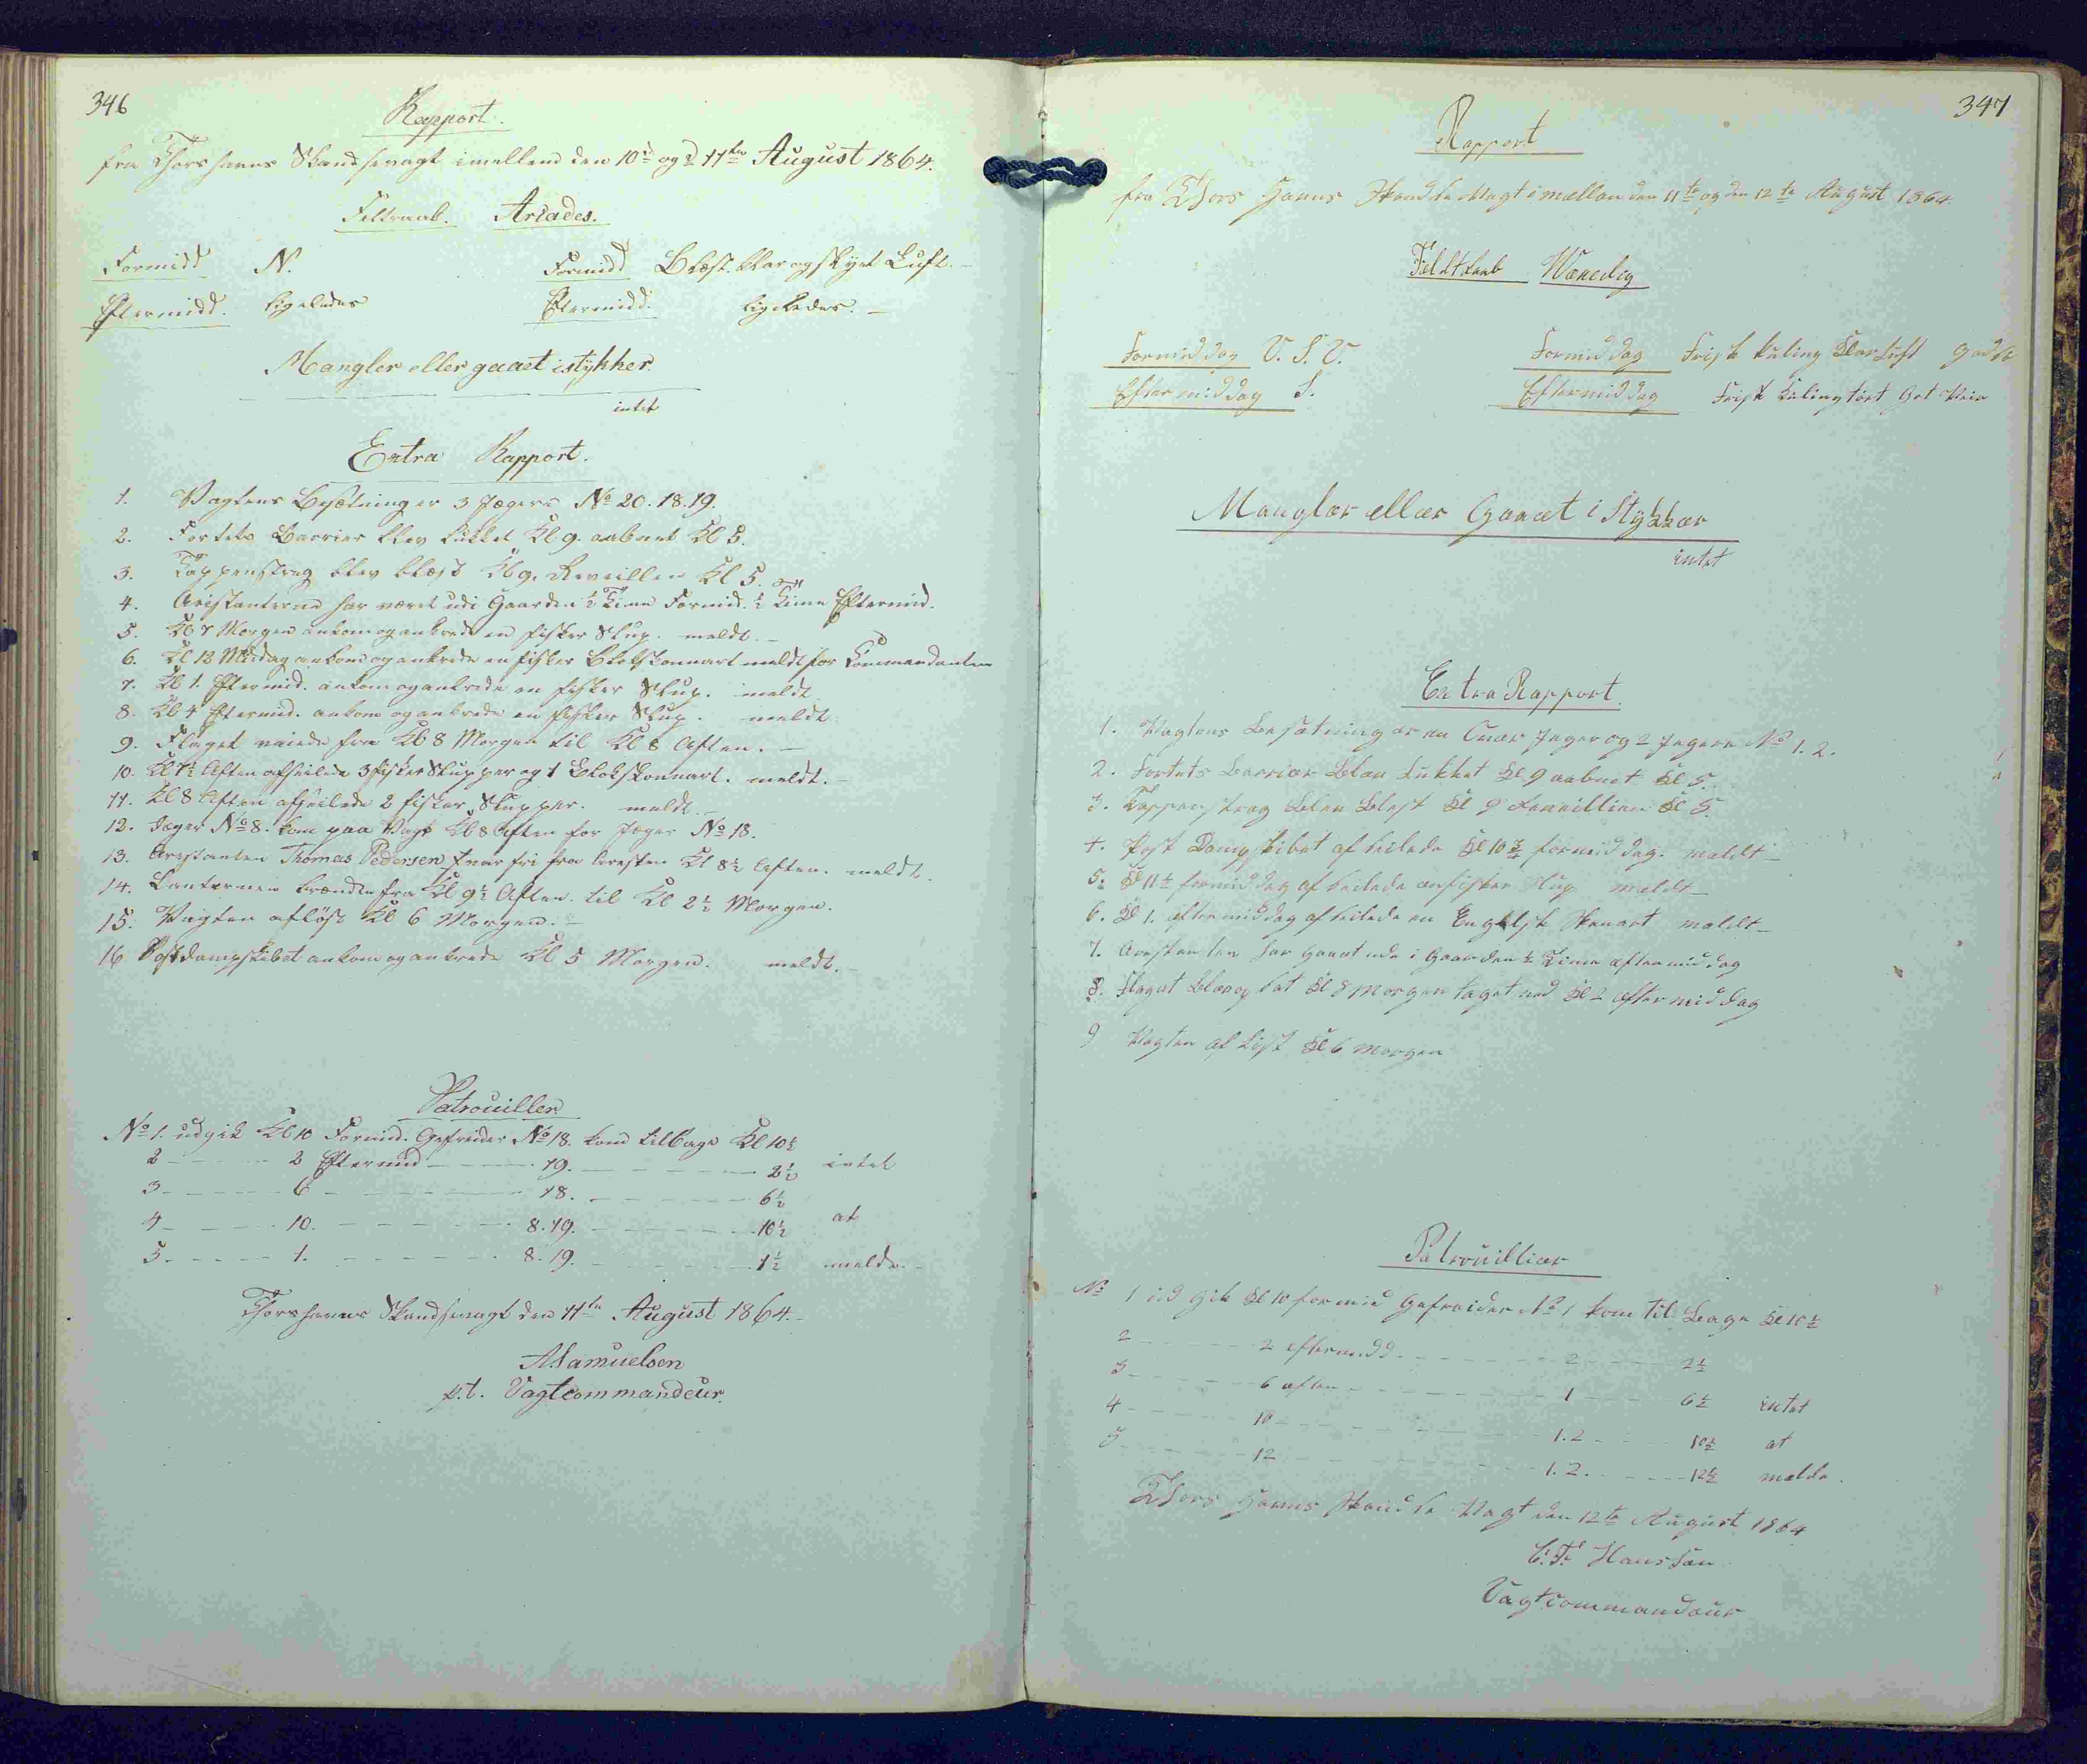 346
Rapport.
fra Thorshavns Skandsevagt imellem den 10de og 11te August 1864.
Feltraab. Ariades.
Formidd N. Formidd Blæst. klar og skyet Luft.
Eftermidd. ligeledes Eftermidd. ligeledes.
Mangler eller gaaet istykker.
intet
Extra Rapport.
1. Vagtens Besætning er 3 Jægere No 20. 18. 19.
2. Fortets Barrier blev lukket Kl 9. aabnet Kl 5.
3. Tappenstreg blev blæst Kl 9. Reveillen Kl 5.
4. Arestanterne har været udi Gaarden ½ Time Formid. ½ Time Eftermid.
5. Kl 7 Morgen ankom og ankrede en fisker Slup. meldt.
6. Kl 12 Middag ankom og ankrede en fisker Skonnart meldt for Kommandanten
7. Kl 1. Eftermid. ankom og ankrede en fisker Slup. meldt
8. Kl 4 Eftermid. ankom og ankrede en fisker Slup. meldt
9. Flaget vaiede fra Kl 8 Morgen til Kl 8 Aften.
10. Kl 7½ Aften afseilede 3 fisker Slupper og 1 Skonnart. meldt.
11. Kl 8 Aften afseilede 2 fisker Slupper. meldt
12. Jæger No 8. kom paa Vagt Kl 8 Aften for Jæger No 18.
13. Arestanten Thomas Pedersen fri fra Aresten Kl 8½ Aften. meldt.
14. Lanternen brændte fra Kl 9½ Aften til Kl 2½ Morgen.
15. Vagten afløst Kl 6 Morgen.
16 Postdampskibet ankom og ankrede Kl 5 Morgen. meldt.
Patrouiller
No 1. udgik Kl 10 Formid. Gefreider No 18. kom tilbage Kl 10½
2 2 Eftermid 19. 2½ intet
3 6 18. 6½
4 10. 8. 19. 10½ at
5 1. 8. 19. 1½ melde.
Thorshavns Skandsevagt den 11te August 1864.
A. Samuelsen
p.t. Vagtcommandeur.
347
Rapport
fra Thors Havns Skandse Vagt imællan den 11te og den 12te August 1864
Feldtraab Wenedig
Formiddag V. S. V. Formiddag Frisk Kuling Klar Luft
Eftermiddag S. Eftermiddag Frisk Kuling tørt Got Veir
Manglær ellær Gaaæt i Stykkær
intæt
Extra Rapport.
1. Vagtens Besætning er en Jæger og 2 Jægere No 1. 2.
2. Fortets Barriær Blæv Lukket Kl 9 aabnet Kl 5.
3. Tappenstrag Blev Blæst Kl 9 Revæillien Kl 5.
4. Post Dampskibet af seilede Kl 10¾ formiddag. mældt
5. Kl 11½ formiddag af seilede en fisker Slup mældt
6. Kl 1. eftermiddag af seilede en Engelsk Skonart mældt
7. Aræstanten har Gaaæt ude i Gaarden ½ Time æftermiddag
8. Flaget Blæv op sat Kl 8 Morgen taget ned Kl 2 æftermiddag
9 Vagten af Løst Kl 6 Morgen
Patrouilliær
No 1 ud Gik Kl 10 formid Gefreider No 1 kom til Bage Kl 10½
2 2 eftermidd. 2 2½
3 6 aften 1 6½ intæt
4 10 1.2 10½ at
5 12 1. 2. 12½ mælde.
Thors Havns Skandse Vagt den 12te August 1864
C. F. Hanssen
Vagtcommandæur